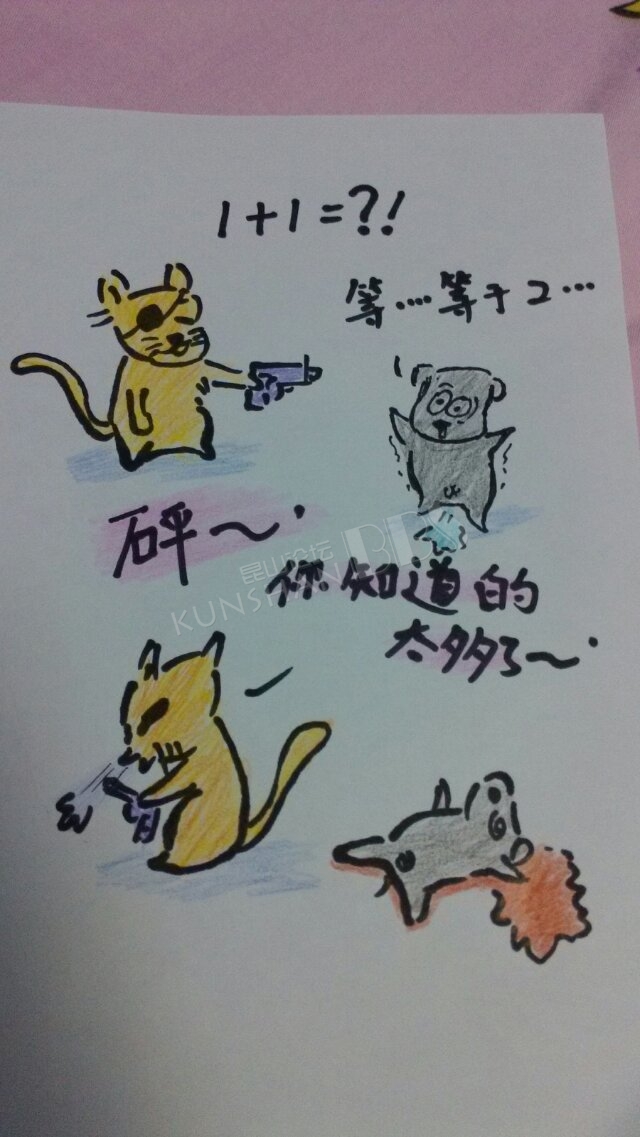 1+1=?!
等....等于2...
砰～·
你知道的
太多了～·
昆山论坛
KUNSHAN BBS